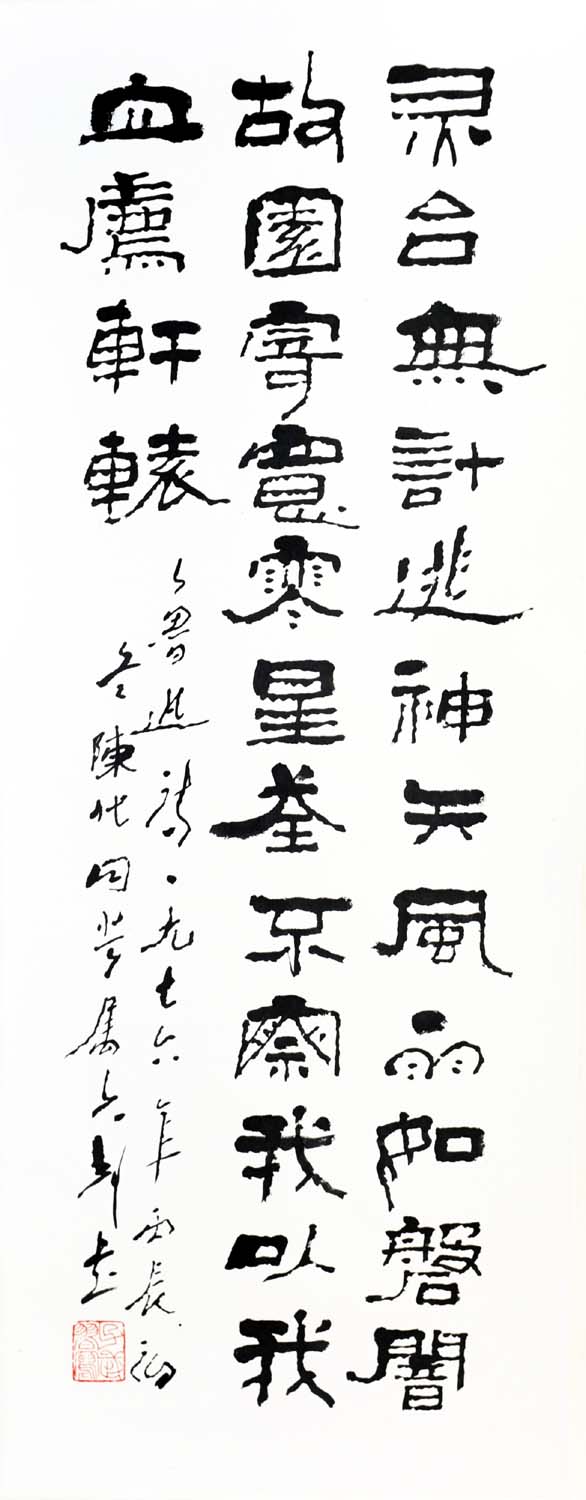 灵台無計逃神矢風雨如磐闇
故園寄意寒星荃不察我以我
血薦軒轅
魯迅詩一九七六年丙辰初
冬陳代同学属